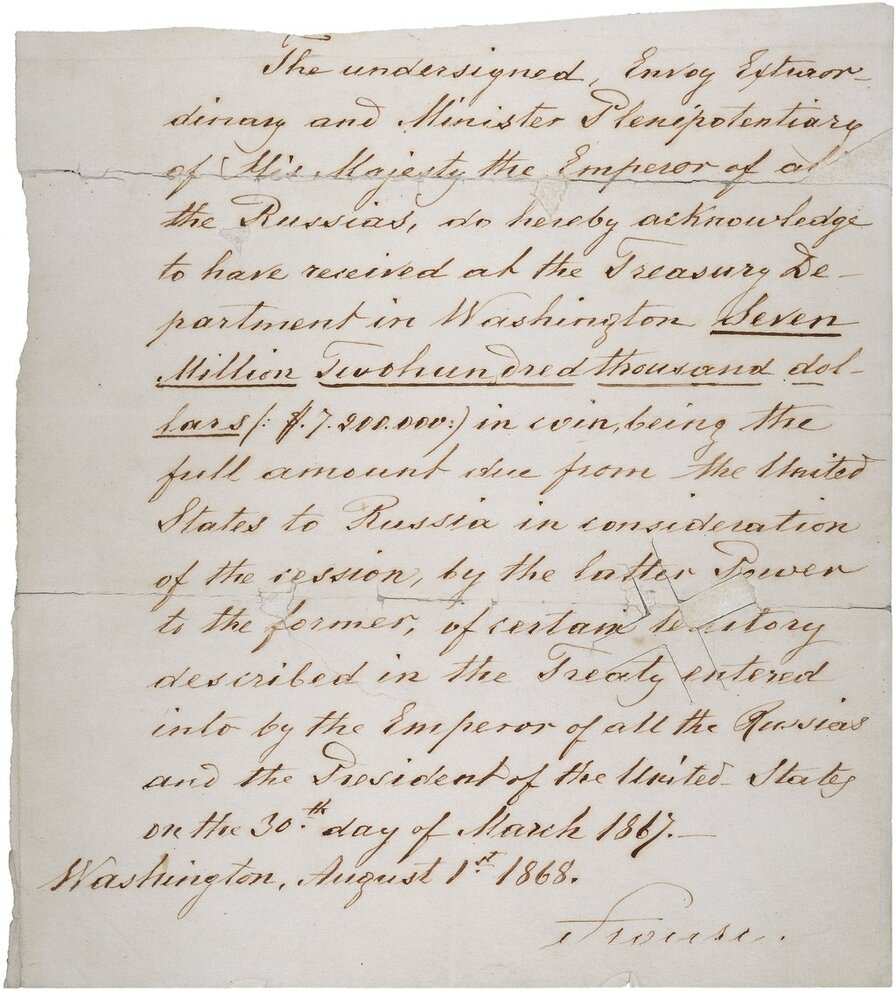 The undersigned, Envoy Extraor-
dinary and Minister Plenipotentiary
of His Majesty the Emperor of all
the Russias, do hereby acknowledge
to have received at the Treasury De-
partment in Washington Seven
Million Twohundred thousand dol-
lars (: $.7.200.000:) in coin, being the
full amount due from the United
States to Russia in consideration
of the cession, by the latter Power
to the former, of certain territory
described in the Treaty entered
into by the Emperor of all the Russias
and the President of the United States
on the 30.th day of March 1867.—
Washington, August 1st 1868.